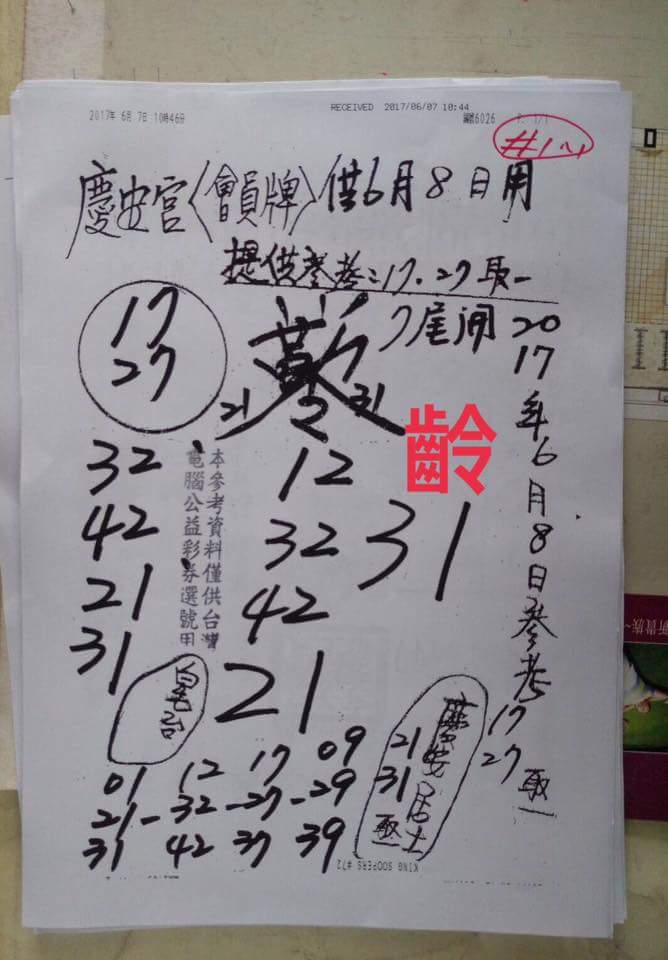 2017年 6月 7日 10時46分
RECEIVED 2017/06/07 10:44
編號6026 P. 1/1
慶安宮〈會員牌〉供6月8日用
提供參考:17.27取一
7尾開
2017年6月8日參考
17
27
取一
17
27
21 31
齡
32
42
21
31
12
32
42
31
21
本參考資料僅供台灣
電腦公益彩券選號用
慶安居士
21
31
取一
01 12 17 09
21-32-27-29
31 42 37 39
KING SOOPERS #72
新貴族~